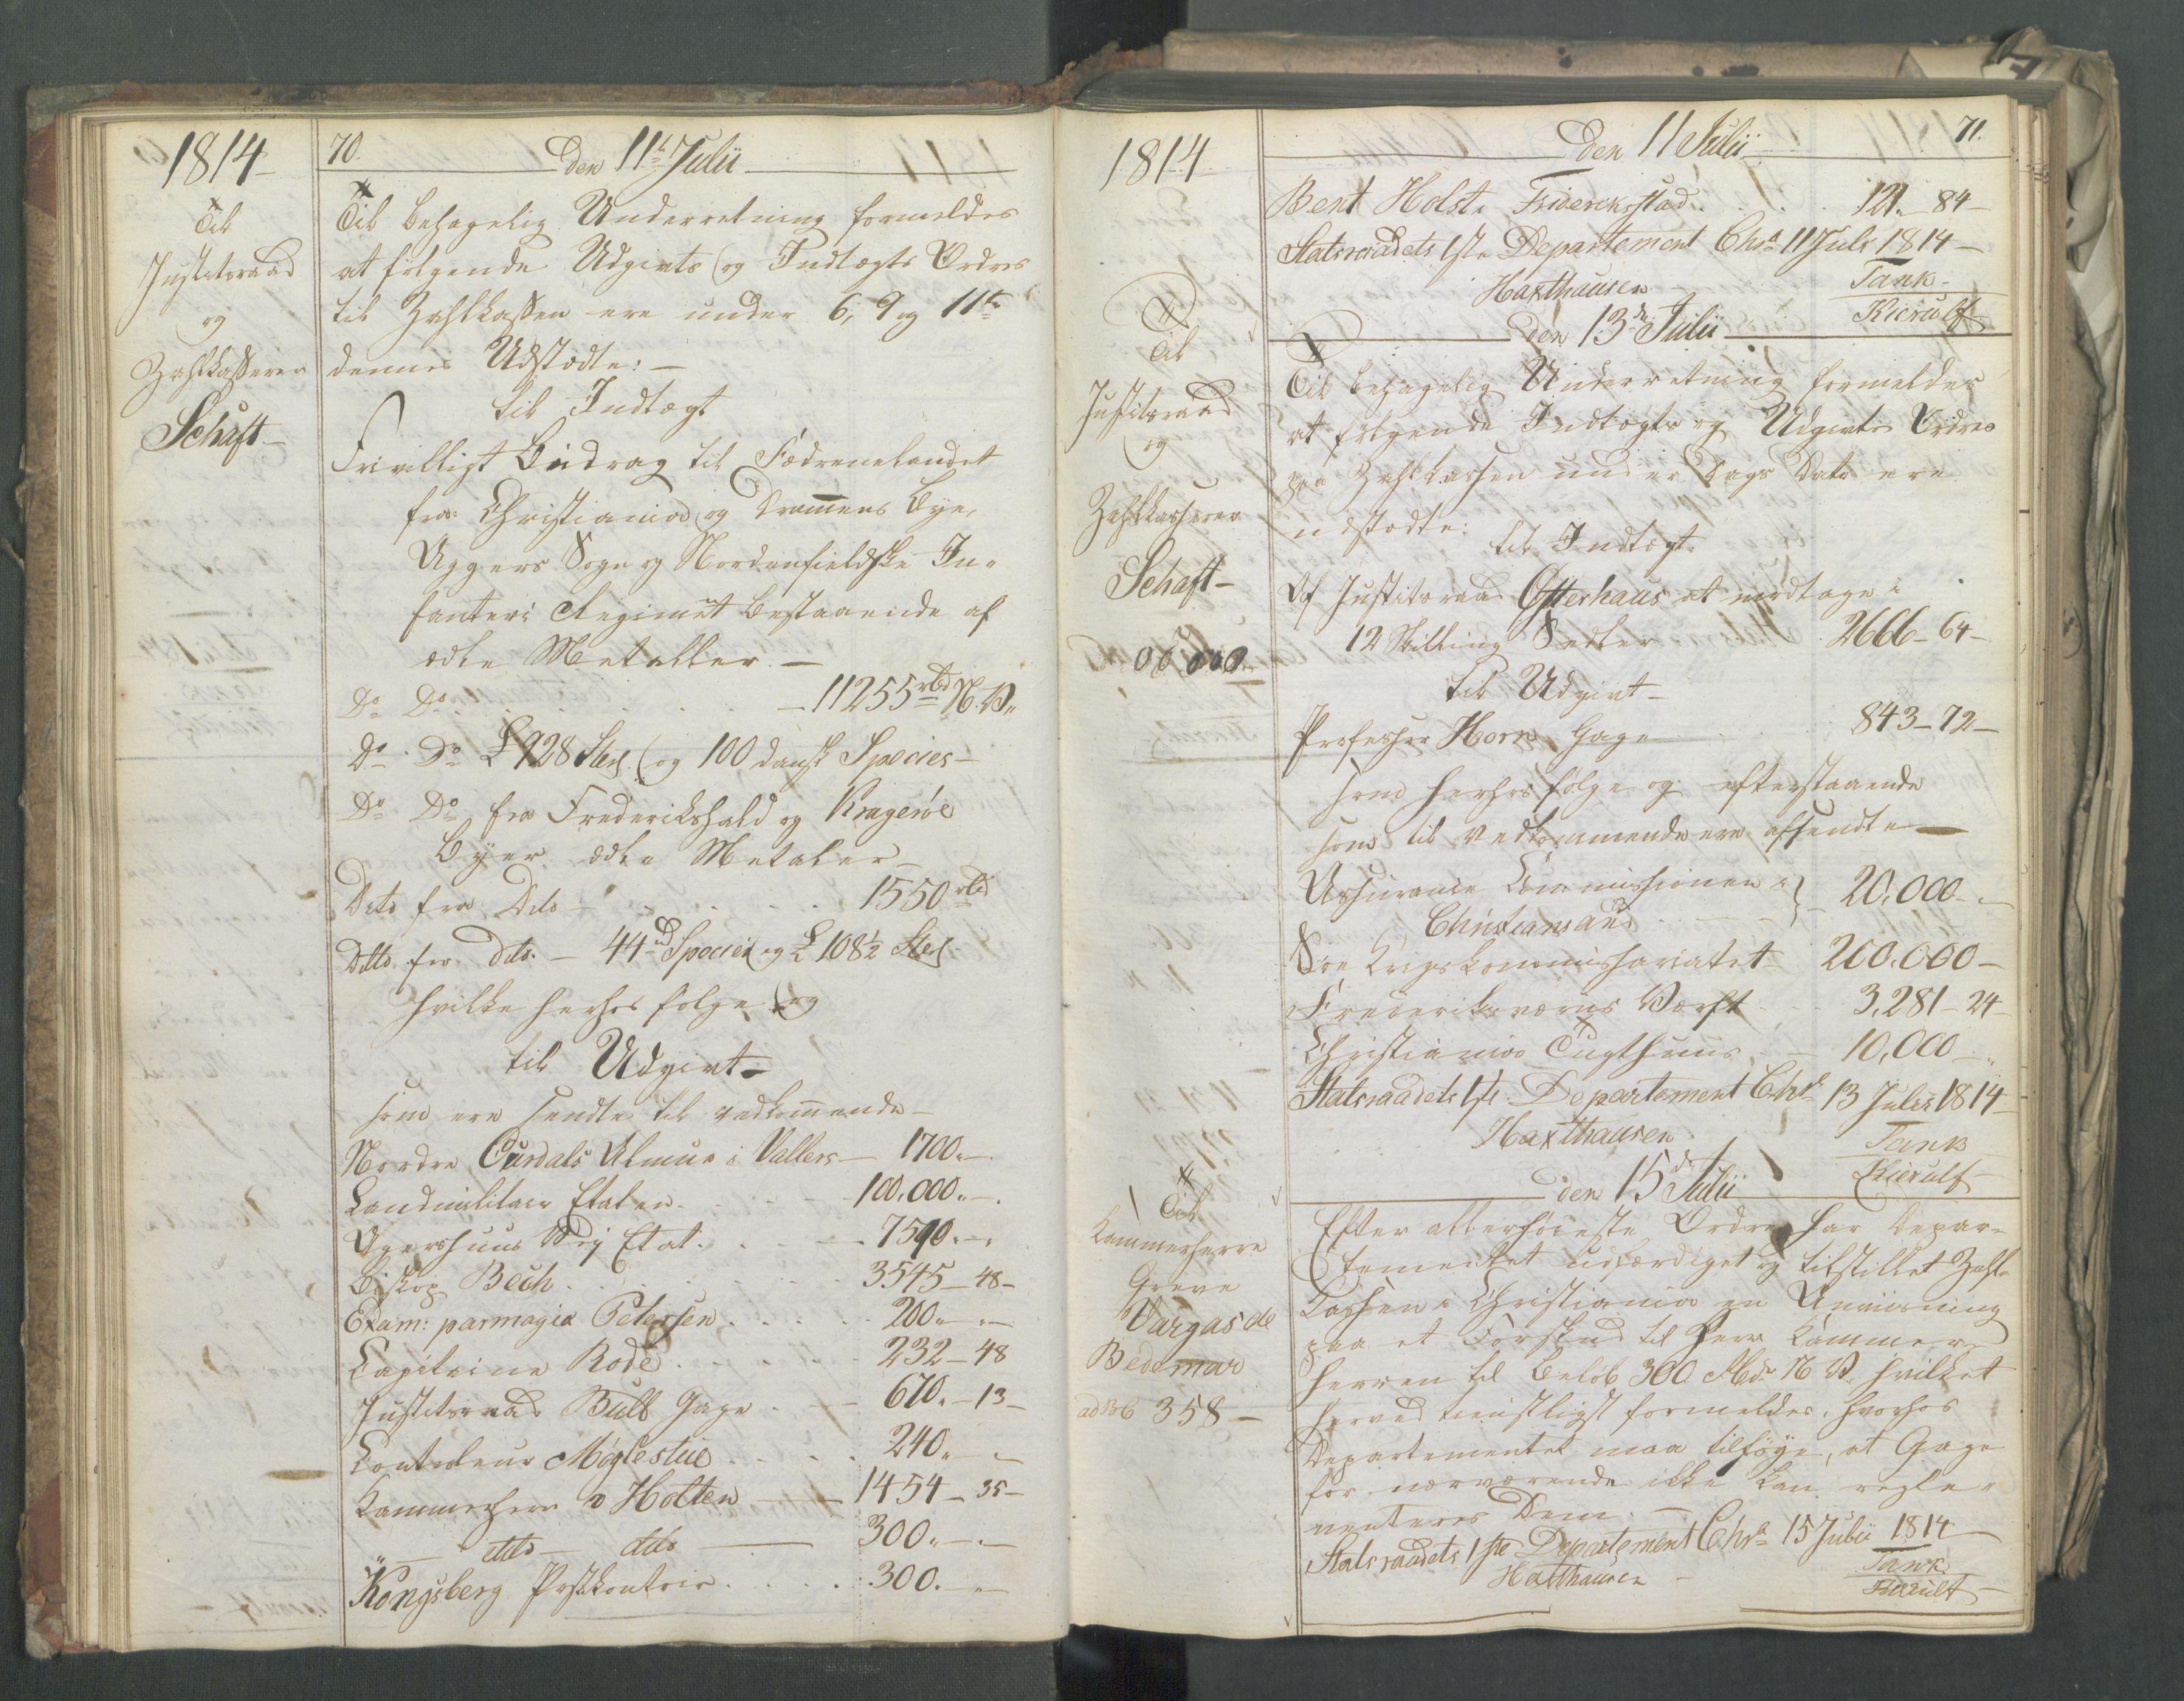 1814
70.
den 11te Julii
Til
Justitsraad
og
Zahlkasserer
Schaft
Til behagelig Underretning formeldes
at følgende Udgivts og Indtægts Ordres
til Zahlkassen ere under 6, 9 og 11te
dennes Udstædte:
til Indtægt
Frivilligt Bidrag til Fædrenelandet
fra Christiania og Drammens Bye,
Aggers Sogn og Nordenfieldske In-
fanteri Regiment bestaaende af
ædle Metaller. —
Do Do . . . . — 11255 rbd N. V.
Do Do £ 928 Sterl. og 100 dansk Species —
Do Do fra Frederikshald og Kragerøe
Byer ædle Metaler —
Dito fra Dito — . . . 1550 rbd
Ditto fra dito. — 44 Species og £ 108½ Sterl
hvilke herhos følge og
til Udgivt —
som ere sendte til vedkommende —
Nordre Ourdals Almue i Vallers — 1700. —
Landmilitair Etaten . . . 100,000. —
Agershuus Vej Etat . . . 7590. —
Biskop Bech . . . 3545 — 48 —
Exam: parmagia Petersen . . . 200. —
Capitaine Rode . . . 232 — 48
Justitsraad Bull Gage . — 670. — 13 —
Controleur Møglestue . . . 240. —
Kammerherr v Holten — 1454 — 35 —
" — dito — dito — 300. —
Kongsberg Postkontoir . . . 300. —
1814
den 11 Julii
71.
Bent Holst, Friderickstad . . . 121. — 84 —
Statsraadets 1ste Departement Chra 11 Juli 1814 —
Haxthausen
Tank —
Kierulf
den 13de Julii
Til
Justitsraad
og
Zahlkasserer
Schaft —
Til behagelig Underretning formeldes
at følgende Indtægts og Udgivts Ordres
paa Zahlkassen under Dags Dato ere
udstædte:
til Indtægt.
Af Justitsraad Ofterhaus at modtage i
12 Skilling Sedler . 2666 — 64 —
til Udgivt —
Professor Horn Gage . . 843 — 72 —
som herhos følge og efterstaaende
som til vedkommende ere afsendte —
Assurance Commissionen i } 20,000 —
Christiansand
Søe Krigskommissariatet 200,000 —
Frederiksværns Værft . . 3,281 — 24
Christiania Tugthuus — 10,000 —
Statsraadets 1ste Departement Chra 13 Julii 1814 —
Haxthausen
Tank
Kierulf
den 15de Julii
Til
Kammerherre
Greve
Vargas de
Bedemar
358 —
Efter allerhøieste Ordre har Depar-
tementet udfærdiget og tilstillet Zahl-
kassen i Christiania en Anviisning
paa et Forskud til Herr Kammer-
herren til Beløb 300 Rbd. N. V. hvilket
herved tienstligst formeldes, hvorhos
Departementet maa tilføye, at Gage
for nærværende ikke kan regle-
menteres Dem. —
Statsraadets 1ste Departement Chra 15 Julii 1814
Haxthausen
Tank
Kierulf